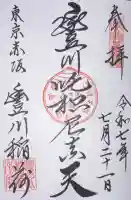 奉拝
令和七年
七月二十一日
豐川吒枳尼真天
豐川稲荷
東京赤坂